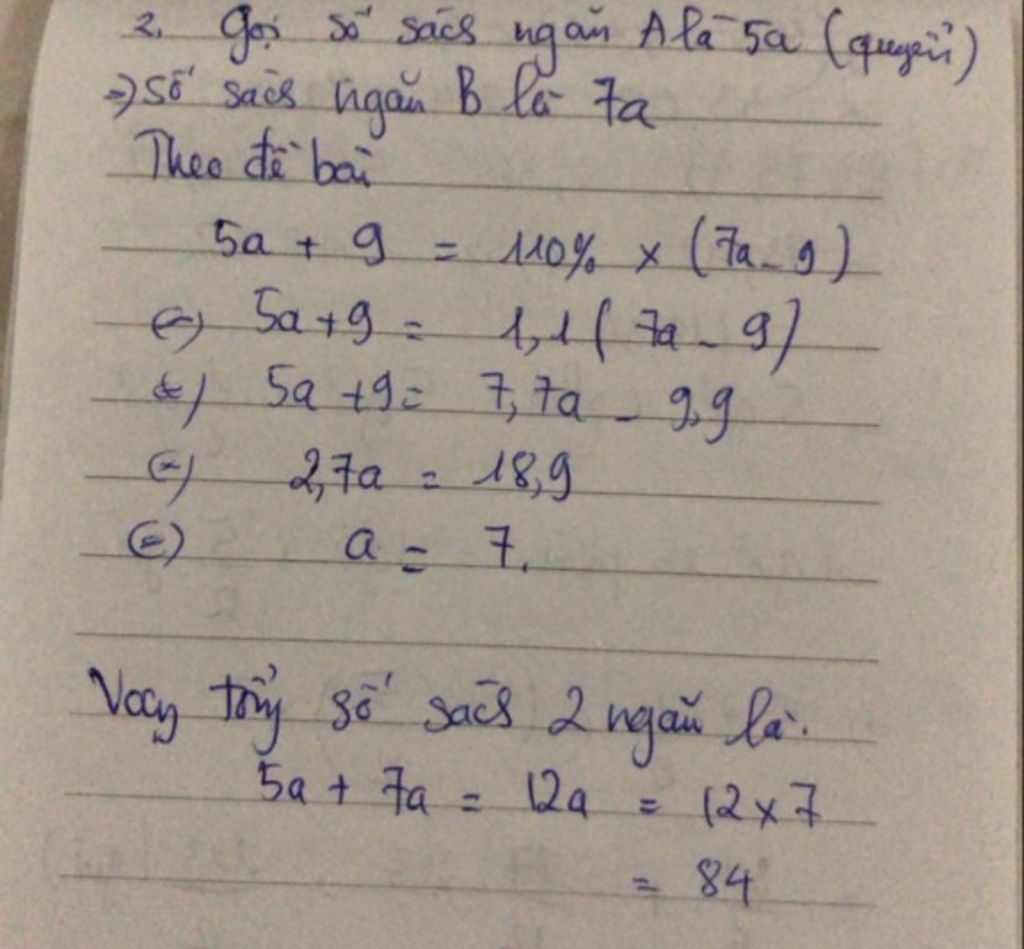 2. Gọi số sách ngăn A là 5a (quyển)
=> Số sách ngăn B là 7a
Theo đề bài
5a + 9 = 110% x (7a - 9)
(=) 5a + 9 = 1,1 ( 7a - 9)
(=) 5a + 9 = 7,7a - 9,9
(=) 2,7a = 18,9
(=) a = 7.
Vậy tổng số sách 2 ngăn là.
5a + 7a = 12a = 12 x 7
= 84